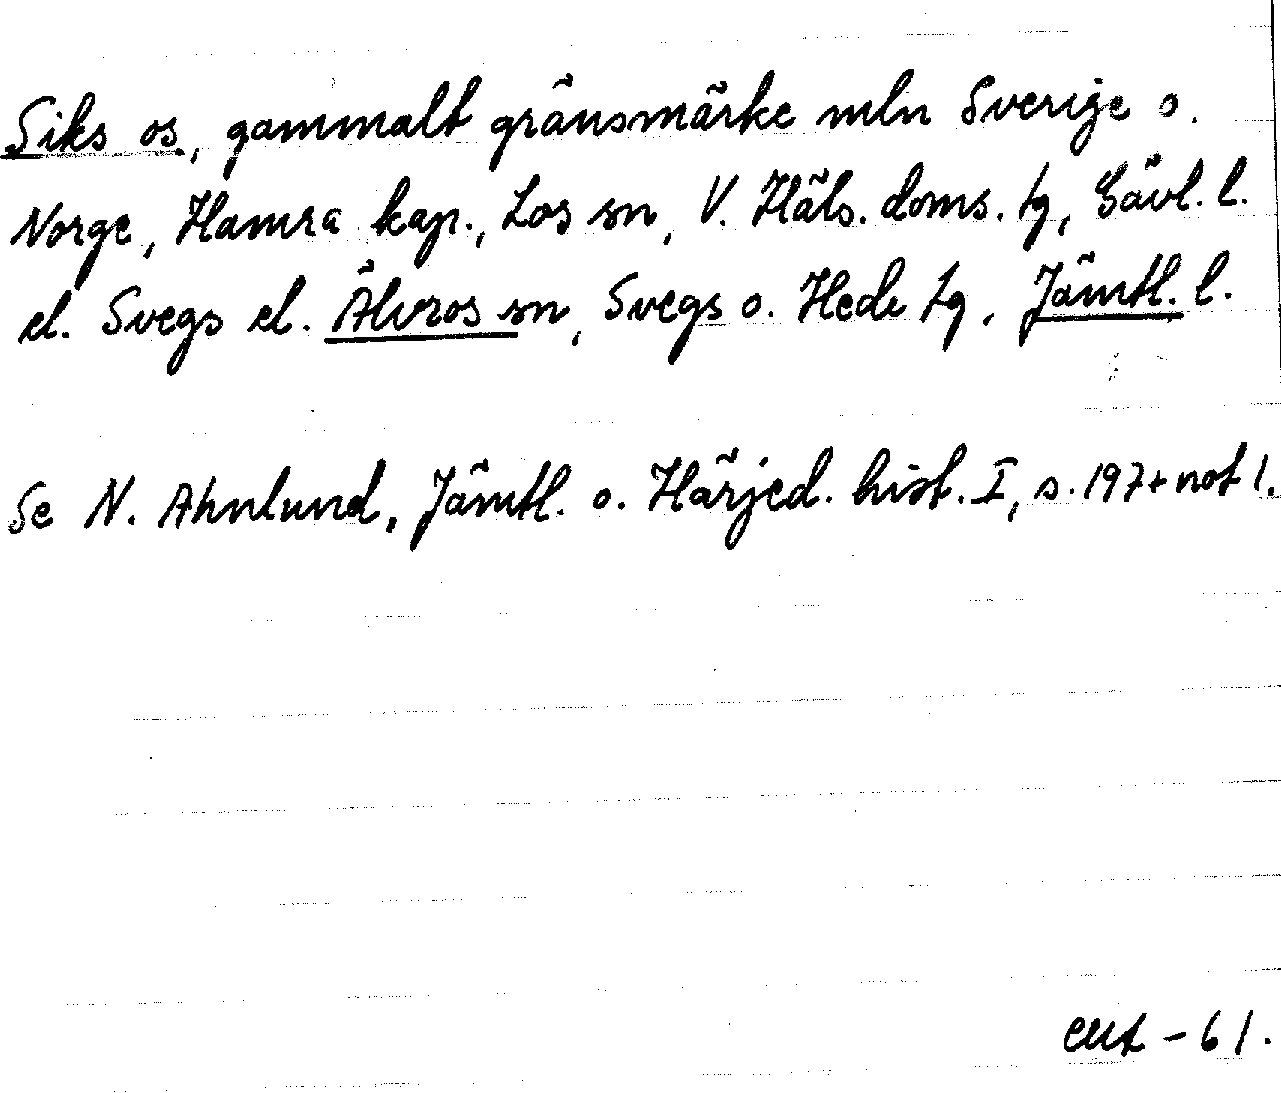 Siks os, gammalt gränsmärke mln Sverige o.
Norge, Hamra kap., Los sn, V. Häls. doms. tg, Gävl. l.
el. Svegs el. Älvros sn, Svegs o. Hede tg, Jämtl. l.
Se N. Ahnlund, Jämtl. o. Härjed. hist. I, s. 197 + not 1.
-61.